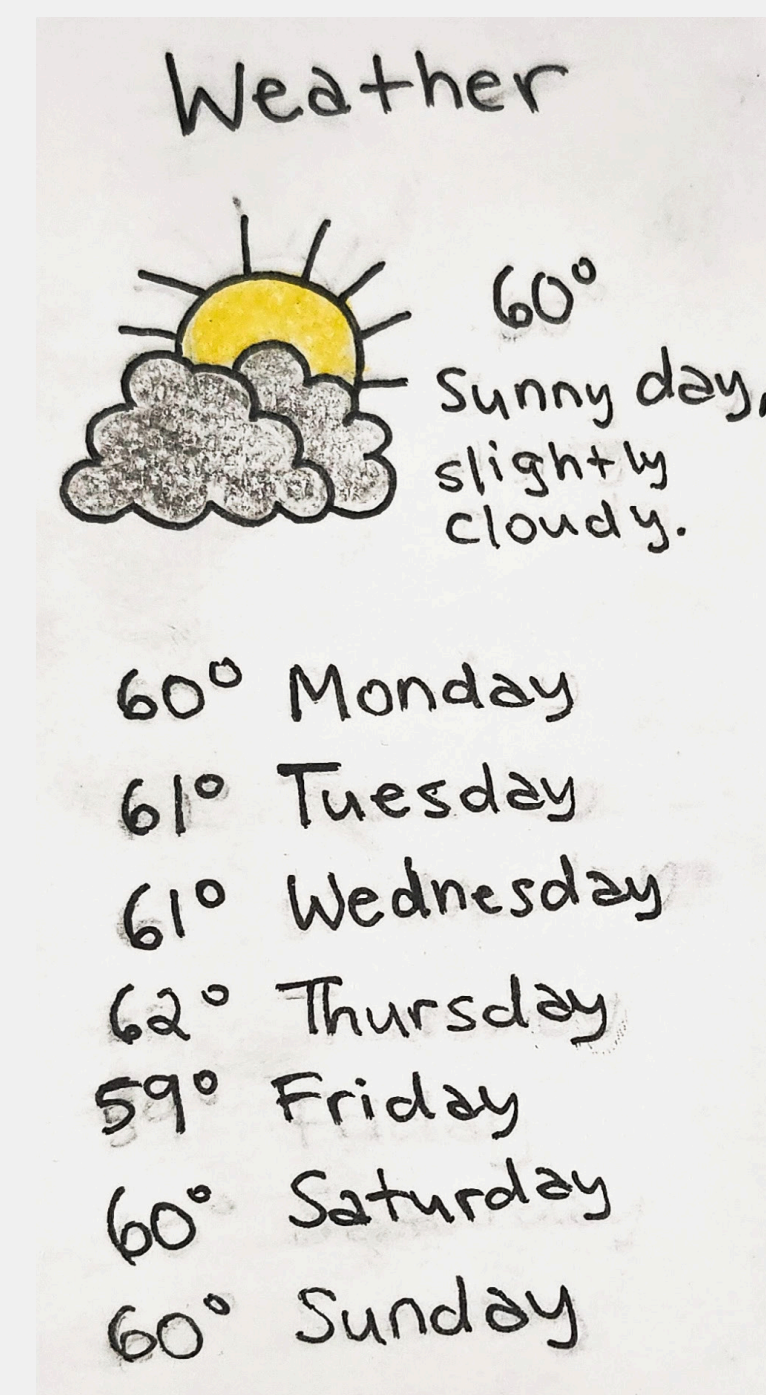 Weather
60°
Sunny day,
slightly
cloudy.
60° Monday
61° Tuesday
61° Wednesday
62° Thursday
59° Friday
60° Saturday
60° Sunday